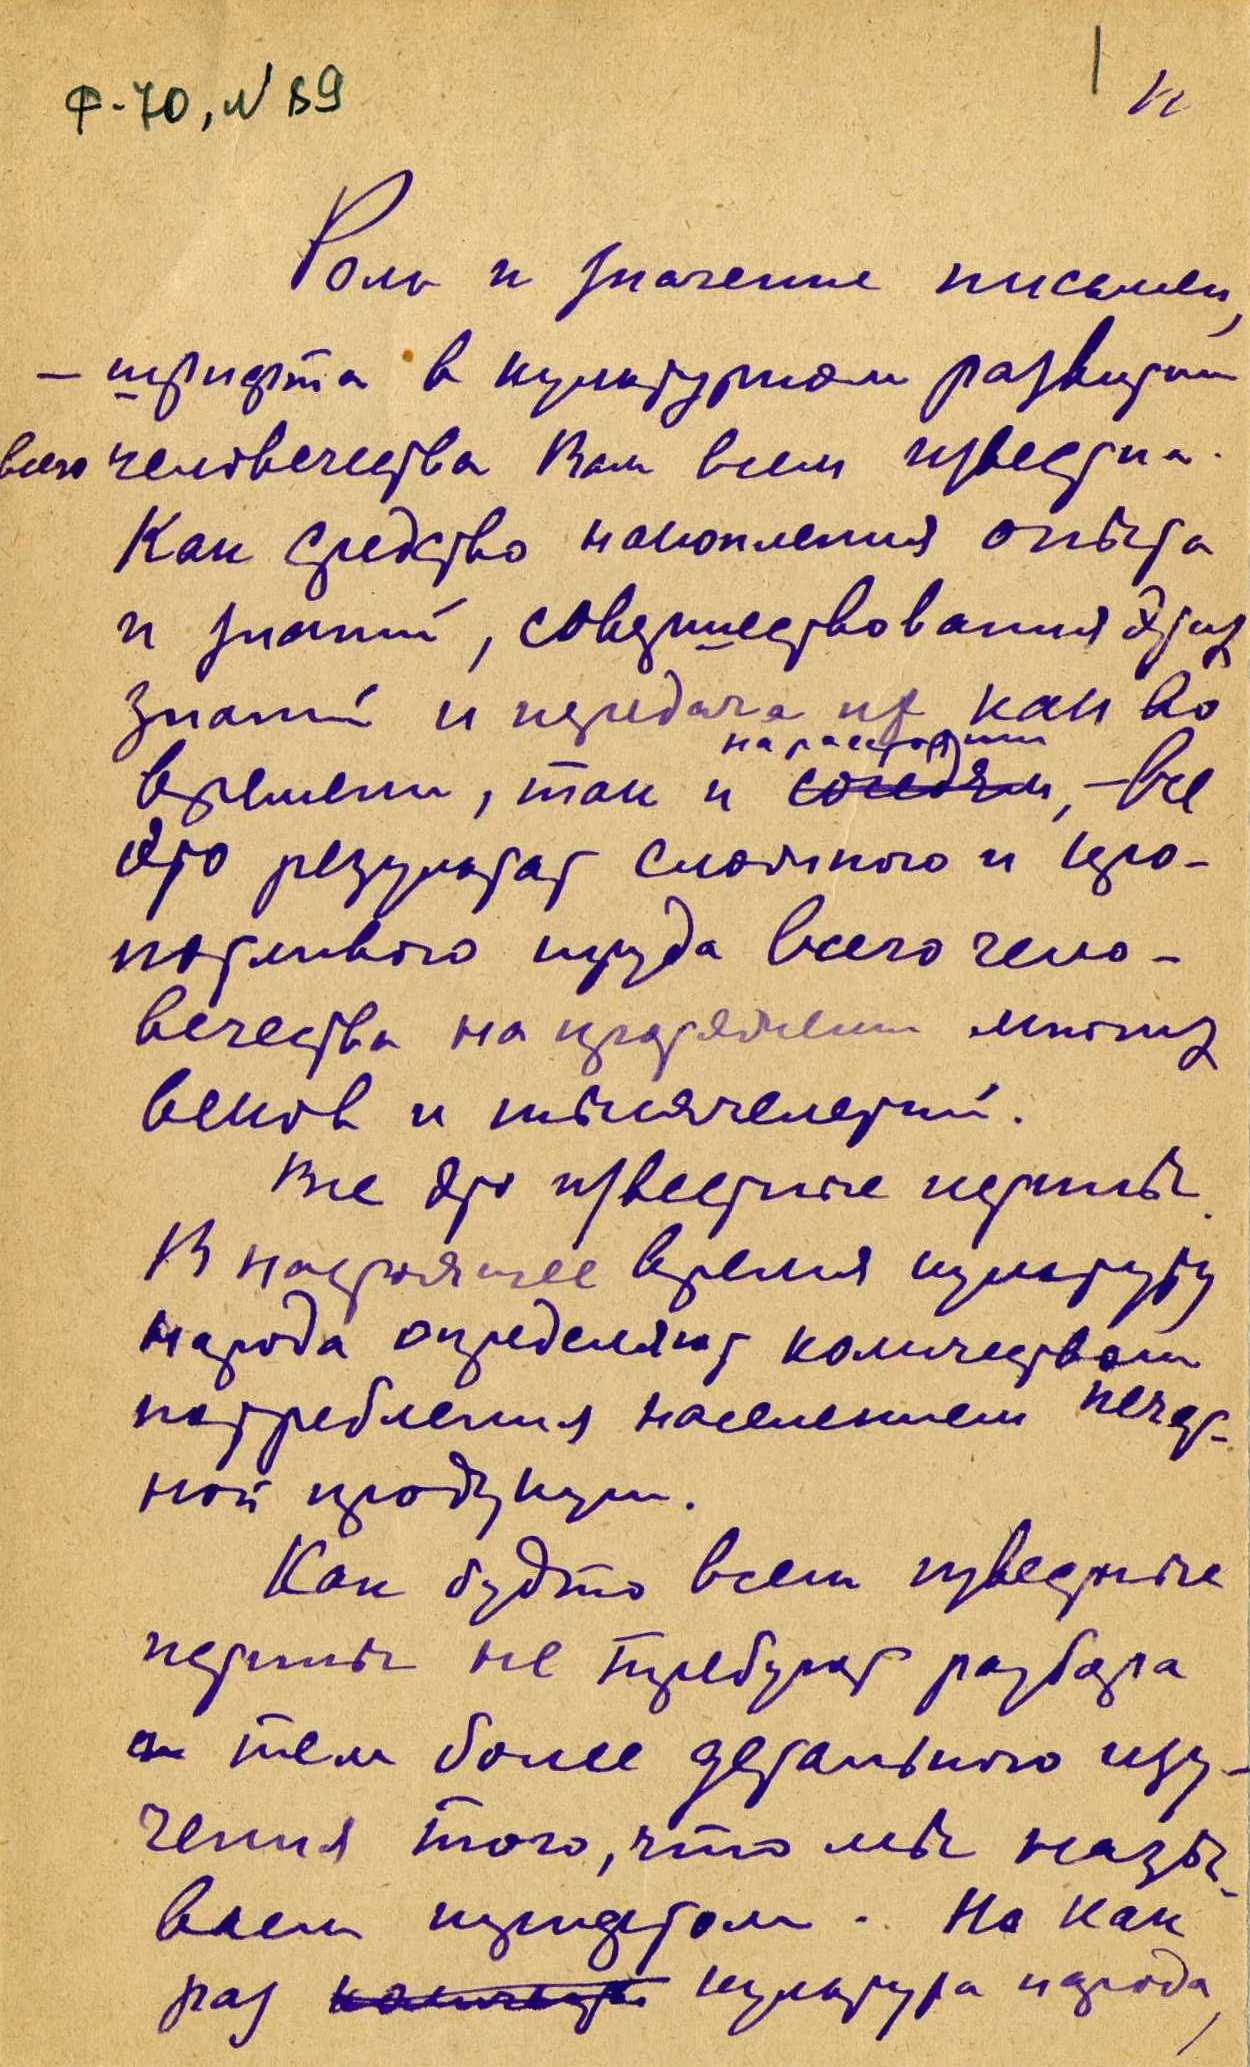 Ф-70, № 89
1
Роль и значение письмен,
— шрифта в культурном развитии
всего человечества Вам всем известна.
Как средство накопления опыта
и знаний, совершествования этих
знаний и передача их как во
на расстоянии
времени, так и соседям, — все
это результат сложного и кро-
потливого труда всего чело-
вечества на протяжении многих
веков и тысячелетий.
Все это известные истины.
В настоящее время культуру
народа определяют количеством
потребления населением печат-
ной продукции.
Как будто всем известные
истины не требуют разбора
и тем более детального изу-
чения того, что мы назы-
ваем шрифтом. Но как
раз количество культура народа,